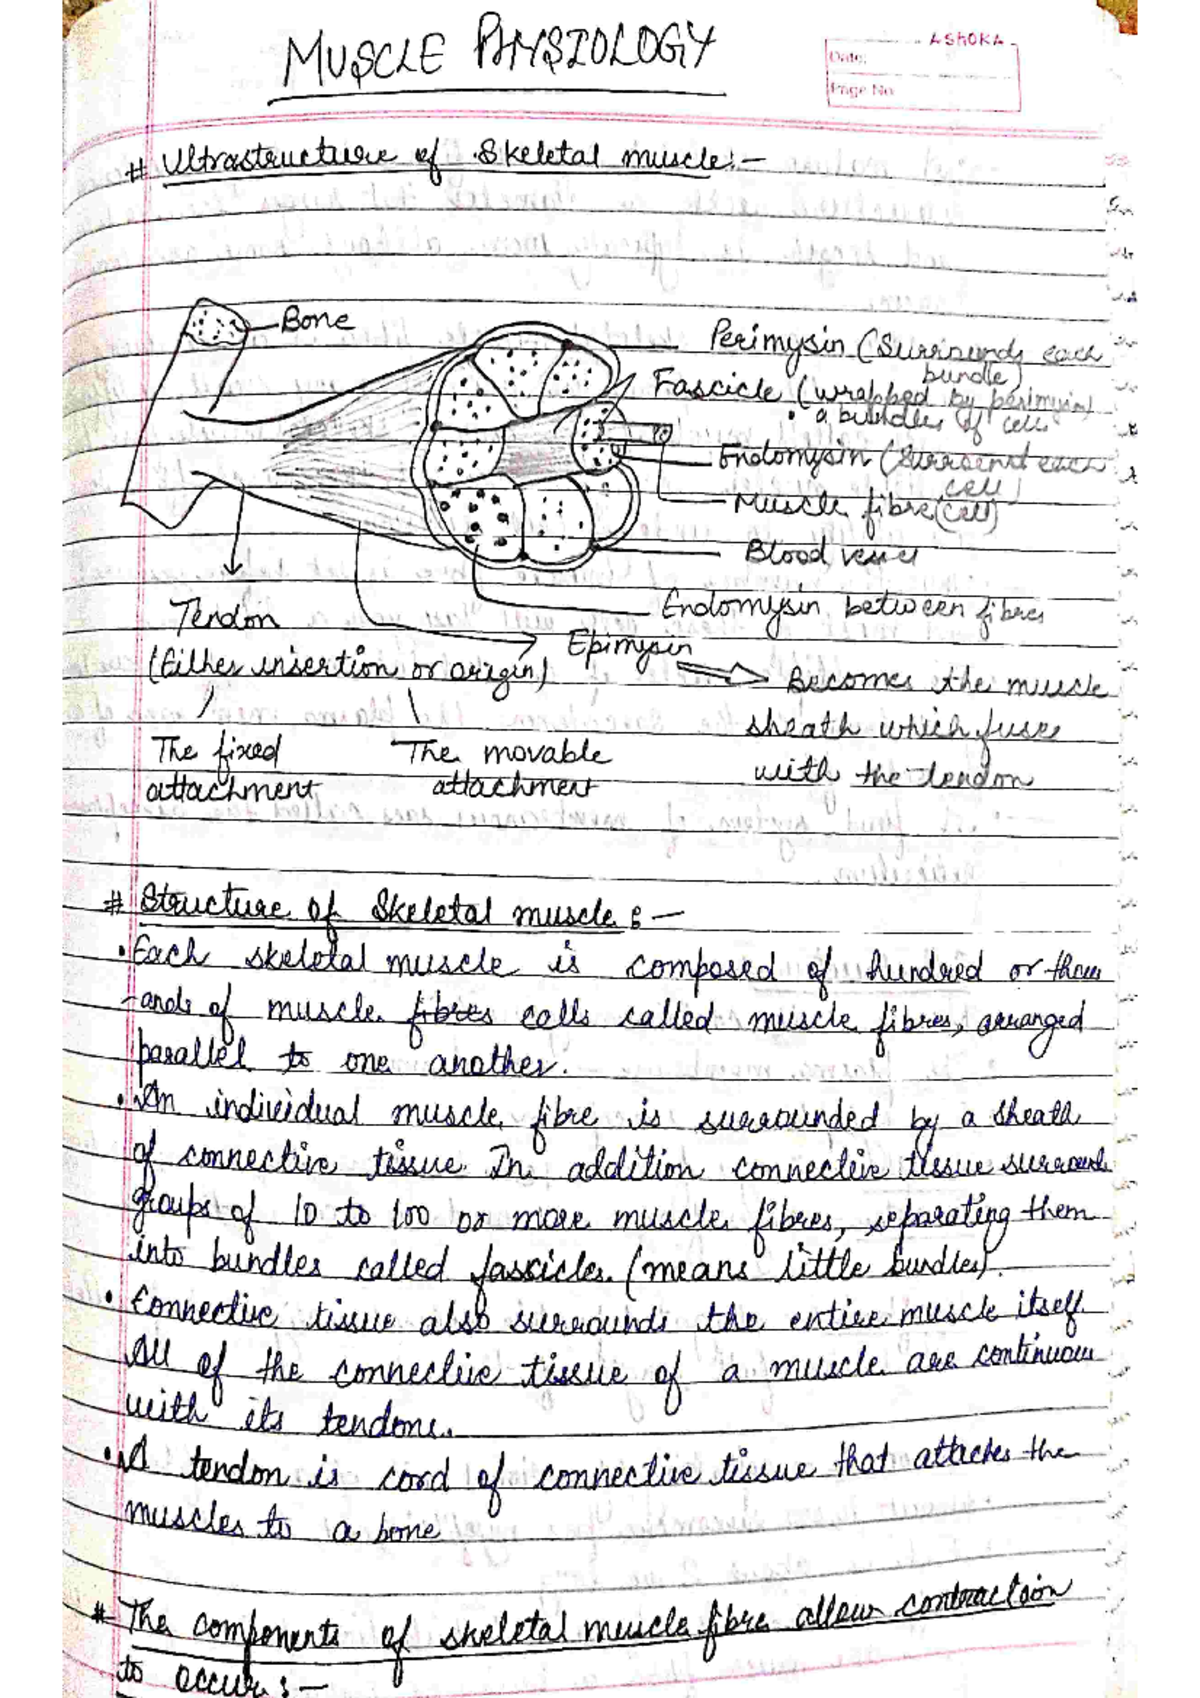 MUSCLE PHYSIOLOGY
ASHOKA
Date:
Page No
# Ultrastructure of Skeletal muscle:-
Bone
Perimysin (Surrounds each
bundle)
Fascicle (wrapped by perimysin)
• a bundles of cells
Endomysin (Surround each
cell)
Muscle fibre (cell)
Blood vessel
Endomysin between fibres
Tendon
Epimysin
(Either insertion or origin)
Becomes the muscle
sheath which fuses
with the tendon
The fixed
attachment
The movable
attachment
# Structure of Skeletal muscle :-
• Each skeletal muscle is composed of hundred or thous
-ands of muscle fibres cells called muscle fibres, arranged
parallel to one another.
• An individual muscle fibre is surrounded by a sheath
of connective tissue. In addition connective tissue surrounds
groups of 10 to 100 or more muscle fibres, separating them
into bundles called fascicles. (means little bundles).
• Connective tissue also surrounds the entire muscle itself.
All of the connective tissue of a muscle are continuous
with its tendons.
• A tendon is cord of connective tissue that attaches the
muscles to a bone
# The components of skeletal muscle fibre allow contraction
to occur :-